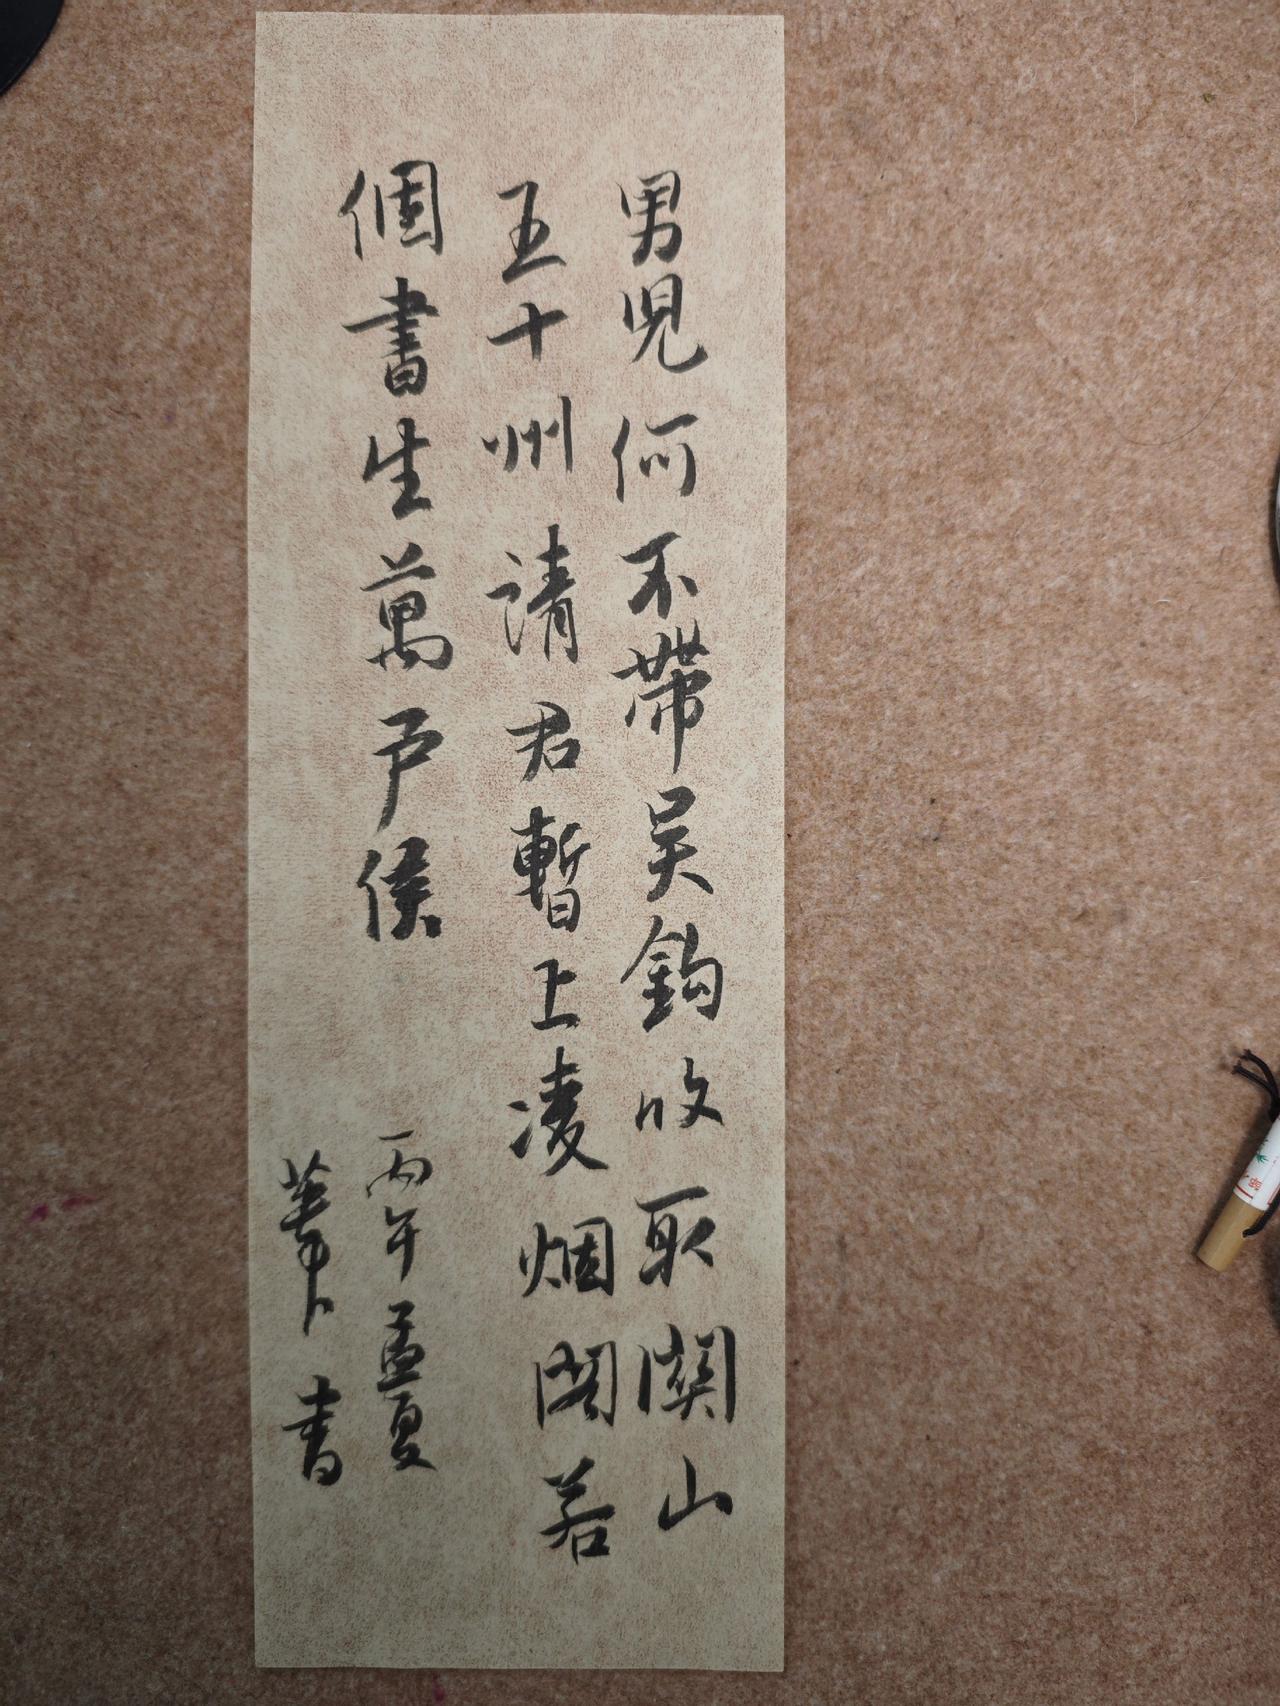 男兒何不帶吴鈎收取關山
五十州請君暫上凌烟閣若
個書生萬户侯
丙午孟夏
書